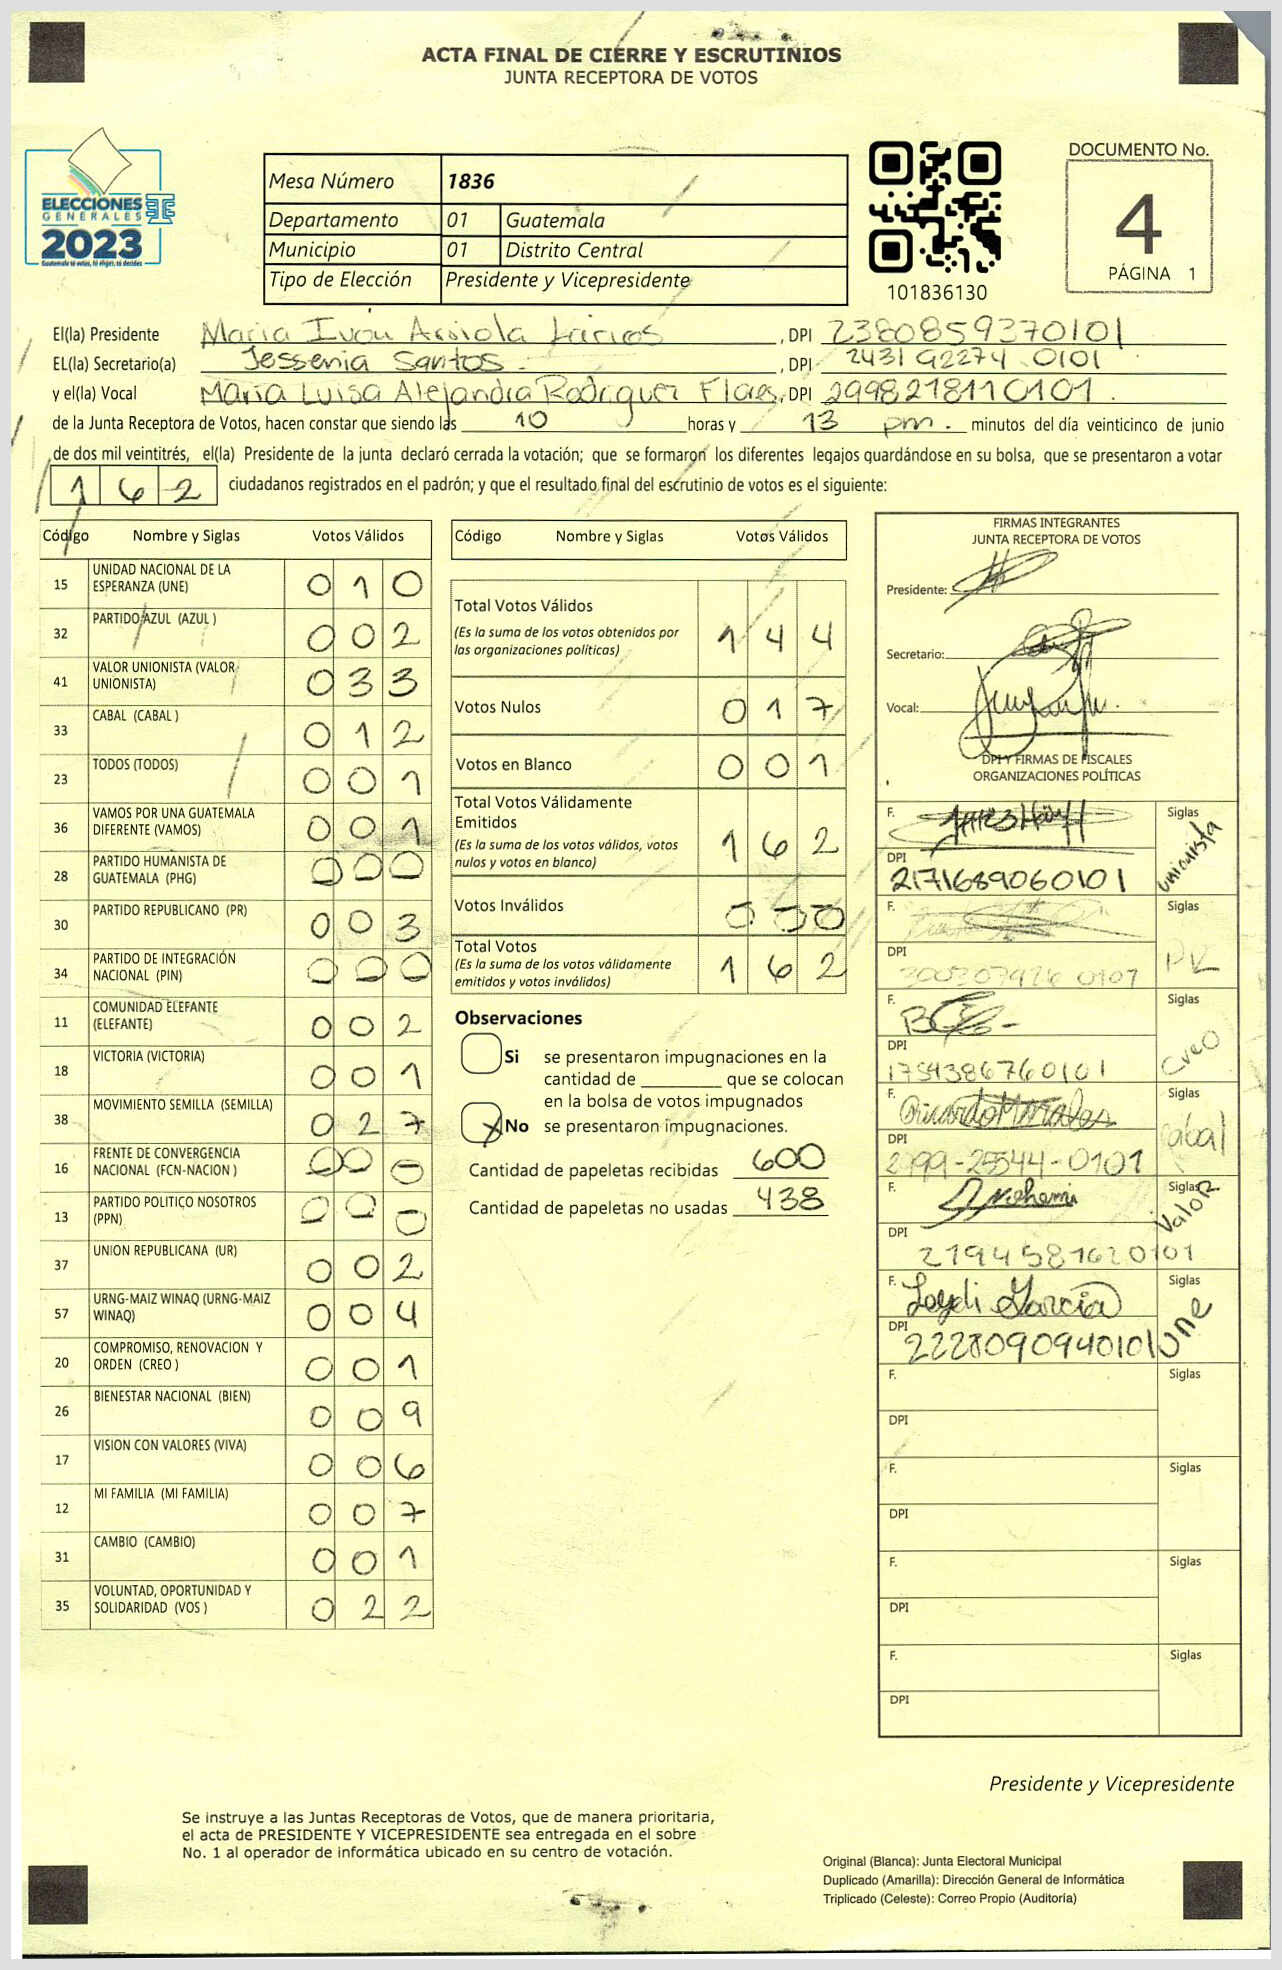 ACTA FINAL DE CIERRE Y ESCRUTINIOS
JUNTA RECEPTORA DE VOTOS
ELECCIONES
GENERALES
2023
Guatemala tú votas, tú eliges, tú decides
Mesa Número 1836
Departamento 01 Guatemala
Municipio 01 Distrito Central
Tipo de Elección Presidente y Vicepresidente
101836130
DOCUMENTO No.
4
PÁGINA 1
El(la) Presidente Maria Ivon Arriola Larios, DPI 2380859370101
EL(la) Secretario(a) Jessenia Santos, DPI 2431 92274 0101
y el(la) Vocal María Luisa Alejandra Rodriguez Flores, DPI 2998218110101.
de la Junta Receptora de Votos, hacen constar que siendo las 10 horas y 13 pm. minutos del día veinticinco de junio
de dos mil veintitrés, el(la) Presidente de la junta declaró cerrada la votación; que se formaron los diferentes legajos guardándose en su bolsa, que se presentaron a votar
162 ciudadanos registrados en el padrón; y que el resultado final del escrutinio de votos es el siguiente:
Código Nombre y Siglas Votos Válidos
15 UNIDAD NACIONAL DE LA ESPERANZA (UNE) 010
32 PARTIDO AZUL (AZUL ) 002
41 VALOR UNIONISTA (VALOR UNIONISTA) 033
33 CABAL (CABAL ) 012
23 TODOS (TODOS) 001
36 VAMOS POR UNA GUATEMALA DIFERENTE (VAMOS) 001
28 PARTIDO HUMANISTA DE GUATEMALA (PHG) 000
30 PARTIDO REPUBLICANO (PR) 003
34 PARTIDO DE INTEGRACIÓN NACIONAL (PIN) 000
11 COMUNIDAD ELEFANTE (ELEFANTE) 002
18 VICTORIA (VICTORIA) 001
38 MOVIMIENTO SEMILLA (SEMILLA) 027
16 FRENTE DE CONVERGENCIA NACIONAL (FCN-NACION ) 000
13 PARTIDO POLITICO NOSOTROS (PPN) 000
37 UNION REPUBLICANA (UR) 002
57 URNG-MAIZ WINAQ (URNG-MAIZ WINAQ) 004
20 COMPROMISO, RENOVACION Y ORDEN (CREO ) 001
26 BIENESTAR NACIONAL (BIEN) 009
17 VISION CON VALORES (VIVA) 006
12 MI FAMILIA (MI FAMILIA) 007
31 CAMBIO (CAMBIO) 001
35 VOLUNTAD, OPORTUNIDAD Y SOLIDARIDAD (VOS ) 022
Código Nombre y Siglas Votos Válidos
Total Votos Válidos 144
(Es la suma de los votos obtenidos por
las organizaciones políticas)
Votos Nulos 017
Votos en Blanco 001
Total Votos Válidamente
Emitidos 162
(Es la suma de los votos válidos, votos
nulos y votos en blanco)
Votos Inválidos 000
Total Votos 162
(Es la suma de los votos válidamente
emitidos y votos inválidos)
Observaciones
Si se presentaron impugnaciones en la
cantidad de ________ que se colocan
en la bolsa de votos impugnados
X No se presentaron impugnaciones.
Cantidad de papeletas recibidas 600
Cantidad de papeletas no usadas 438
FIRMAS INTEGRANTES
JUNTA RECEPTORA DE VOTOS
Presidente:
Secretario:
Vocal:
DPI Y FIRMAS DE FISCALES
ORGANIZACIONES POLÍTICAS
F. Siglas unionista
DPI 2171689060101
F. Siglas
DPI
F. Siglas Creo
DPI
F. Ricardo Morales Siglas Cabal
DPI
F. Siglas Valor
DPI 2194581620101
F. Leydi García Siglas Une
DPI 2228090940101
F. Siglas
DPI
F. Siglas
DPI
F. Siglas
DPI
F. Siglas
DPI
Presidente y Vicepresidente
Se instruye a las Juntas Receptoras de Votos, que de manera prioritaria,
el acta de PRESIDENTE Y VICEPRESIDENTE sea entregada en el sobre
No. 1 al operador de informática ubicado en su centro de votación.
Original (Blanca): Junta Electoral Municipal
Duplicado (Amarilla): Dirección General de Informática
Triplicado (Celeste): Correo Propio (Auditoría)